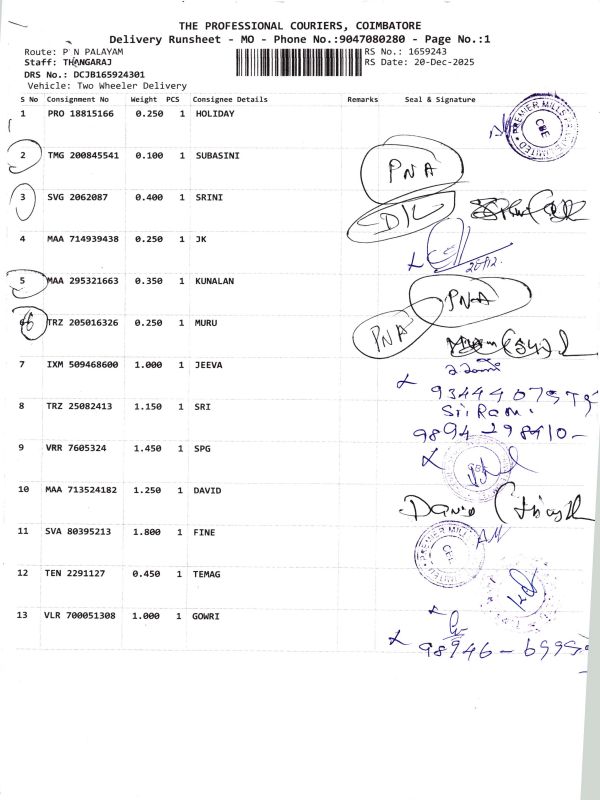 THE PROFESSIONAL COURIERS, COIMBATORE
Delivery Runsheet - MO - Phone No.:9047080280 - Page No.:1
Route: P N PALAYAM
RS No.: 1659243
Staff: THANGARAJ
RS Date: 20-Dec-2025
DRS No.: DCJB165924301
Vehicle: Two Wheeler Delivery
S No Consignment No Weight PCS Consignee Details Remarks Seal & Signature
1 PRO 18815166 0.250 1 HOLIDAY
PREMIER MILLS LIMITED CBE
2 TMG 200845541 0.100 1 SUBASINI PNA
3 SVG 2062087 0.400 1 SRINI D/L
4 MAA 714939438 0.250 1 JK
20/12
5 MAA 295321663 0.350 1 KUNALAN PNA
6 TRZ 205016326 0.250 1 MURU PNA
7 IXM 509468600 1.000 1 JEEVA
8 TRZ 25082413 1.150 1 SRI Sri Ram.
9 VRR 7605324 1.450 1 SPG
10 MAA 713524182 1.250 1 DAVID David
11 SVA 80395213 1.800 1 FINE
PREMIER MILLS LIMITED CBE
12 TEN 2291127 0.450 1 TEMAG
13 VLR 700051308 1.000 1 GOWRI
98946-6995